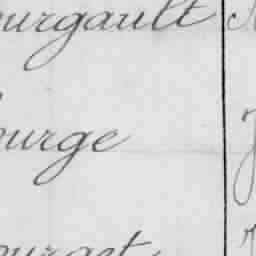 ourgault
ourge
ourget